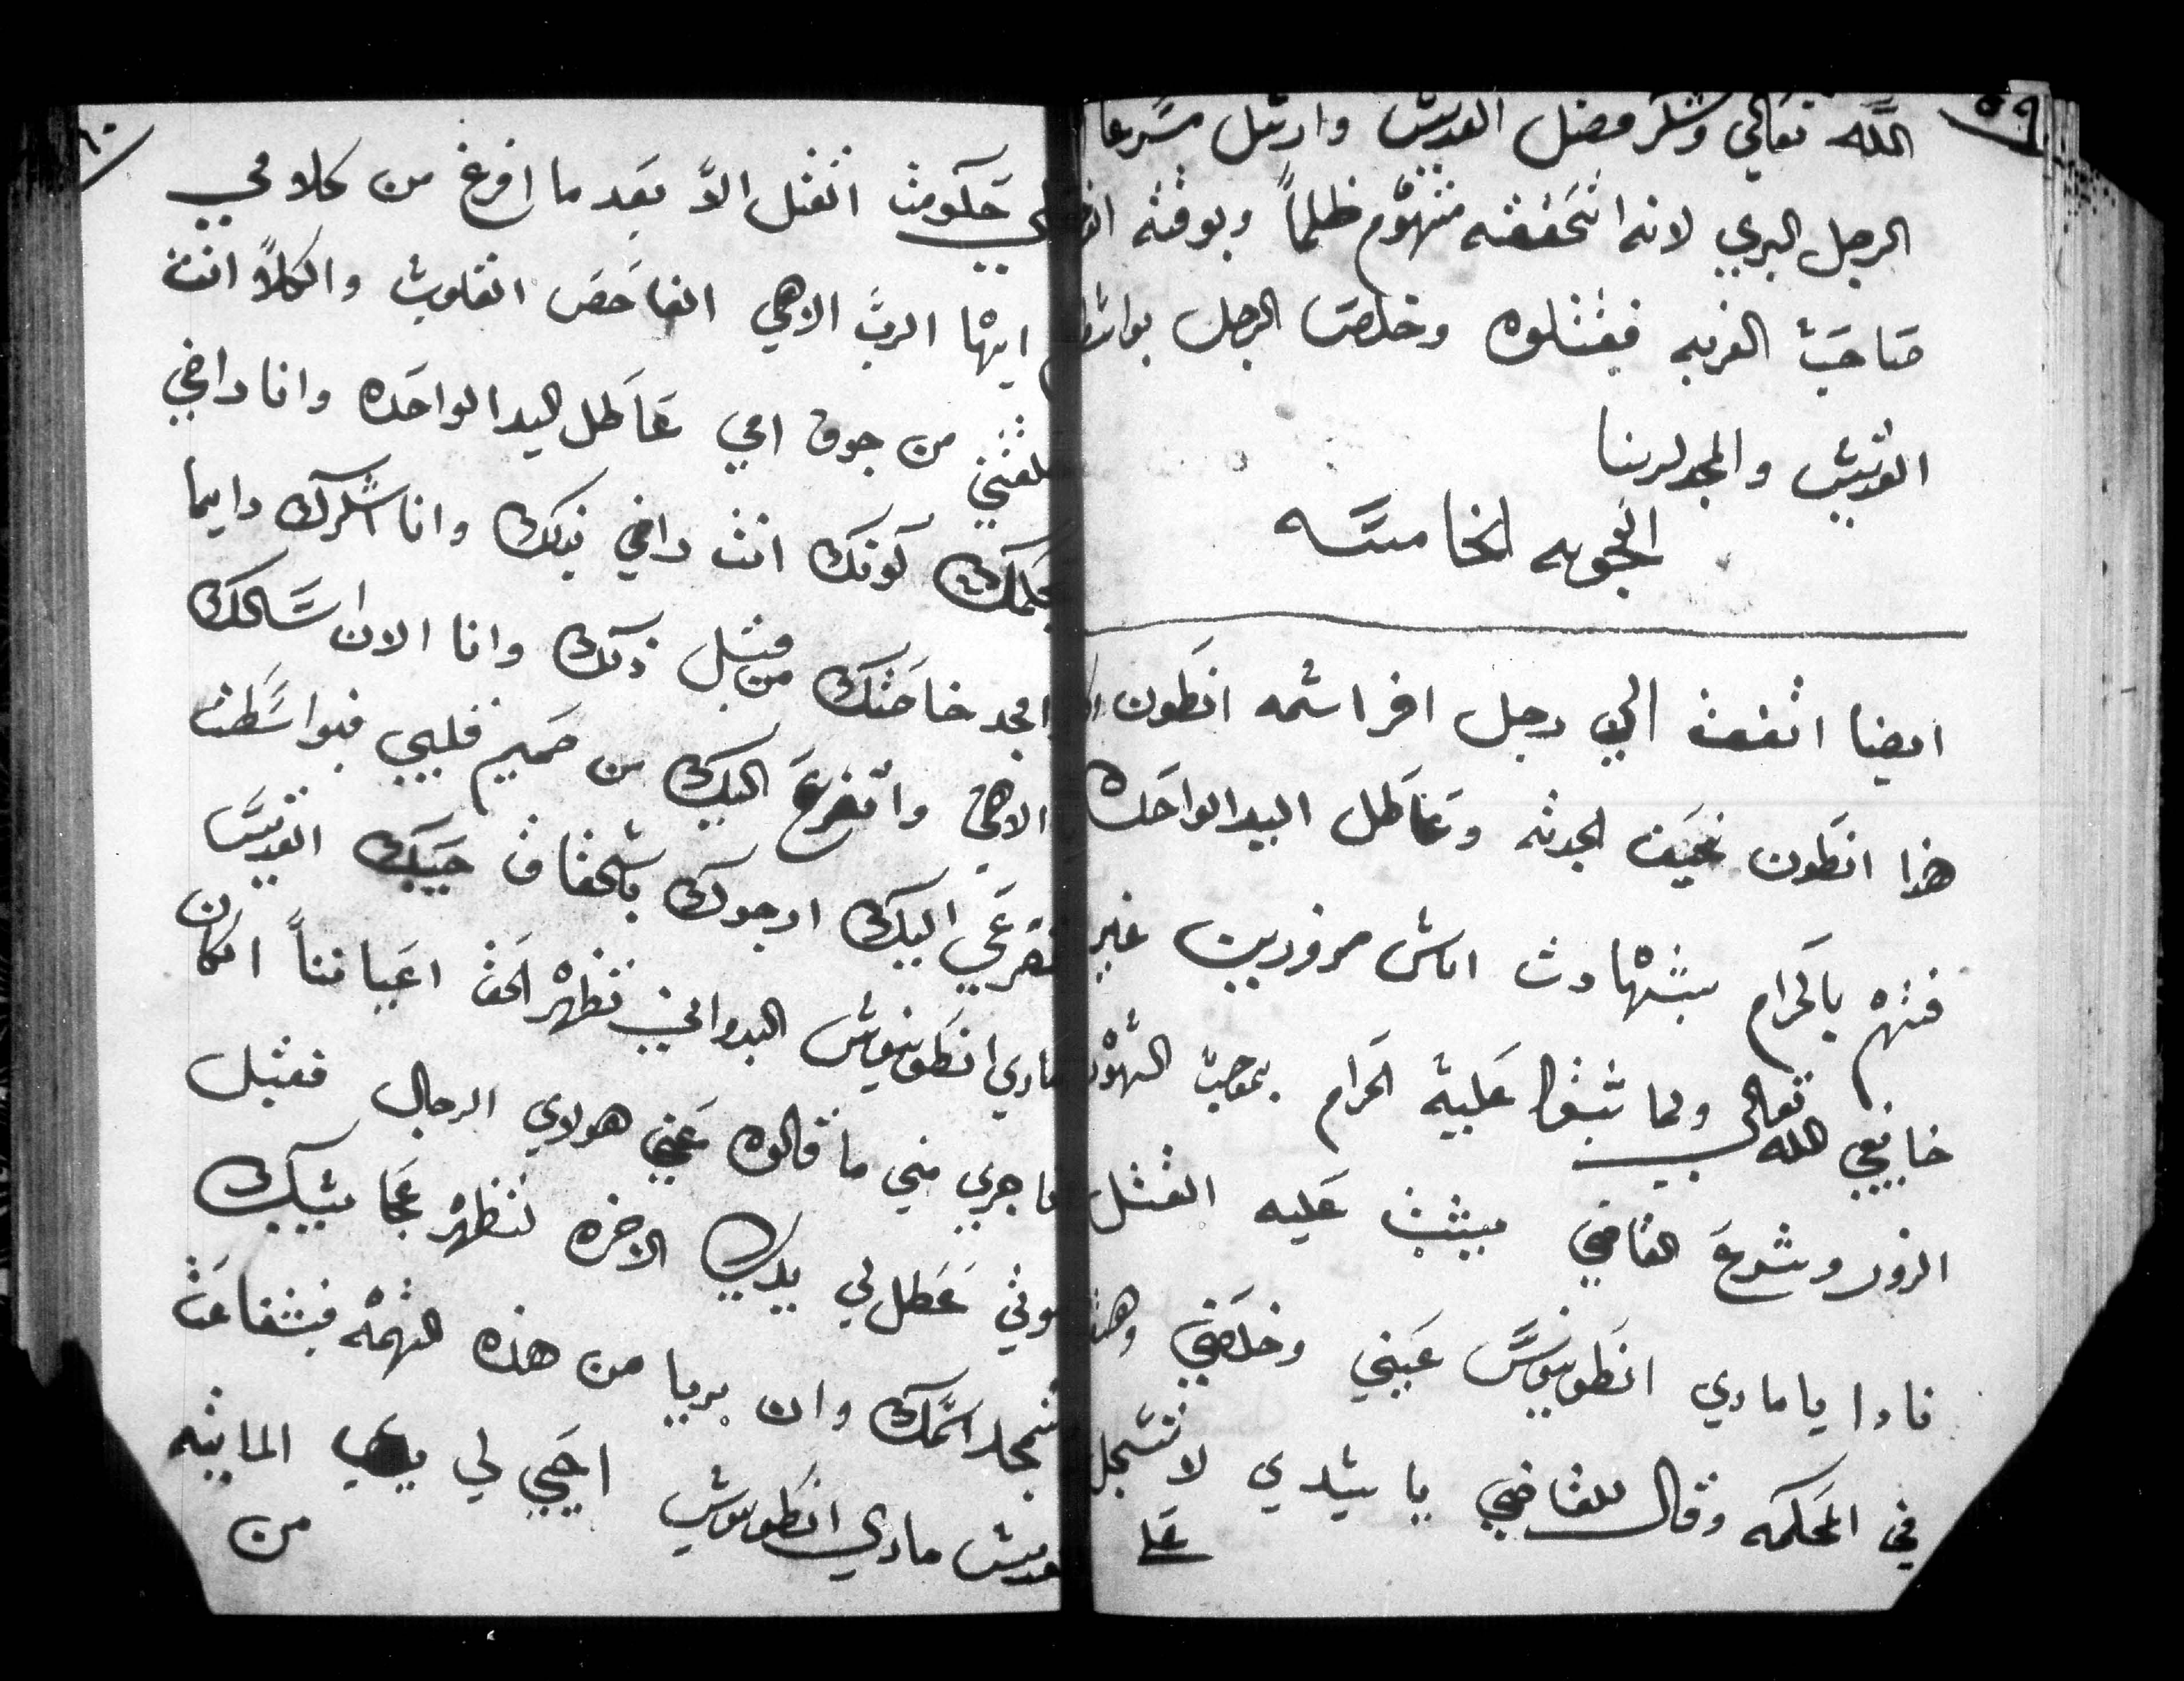 ٥٩
الله تعالي وشكر فضل القديس وارسل مسرعا
الرجل البري لانه اتحققه متهوم ظلماً وبوقته
صاحب القريه فقتلوه وخلص الرجل
القديس والمجد لربنا
العجوبه الخامسه
ايضا اتفقت الي رجل اخر اسمه انطون
هذا انطون نحيف الجدته وعاطل اليد الواحده
فتهم بالحرام بشهادت اناس مزورين غير
خايفي الله تعالي ولما ثبتوا عليه الحرام بموجب الشهود
الزور وشرع القاضي يثبت عليه القتل
نادا يا ماري انطونيوس عيني وخلصني وهو
في المحكمه وقال للقاضي يا سيدي لا تستعجل
علي
٦٠
حكومت القتل الاَّ بعد ما افرغ من كلامي
ايها الرب الاهي الفاحص القلوب والكلاً انت
خلقتني من جوف امي عاطل اليد الواحده وانا راضي
بحكمك كونك انت راضي بذلك وانا اشكرك دايما
وامجد خاصتك من قبل ذلك وانا الان اسالك
الاهي واتضرع اليك من صميم قلبي فبواسطت
تضرعي اليك ارجوك بشحقاق حبيبك القديس
ماري انطونيوس البدواني تظهر الحق اعيانناً انكان
ما جري مني ما قالوه عني هولاي الرجال فقبل
موتي عطل لي يديك الاخره لتظهر عجايبك
لتمجد اسمك وان بريا من هذه التهمه فبشفاعت
القديس ماري انطونيوس احيي لي يدي المايته
من